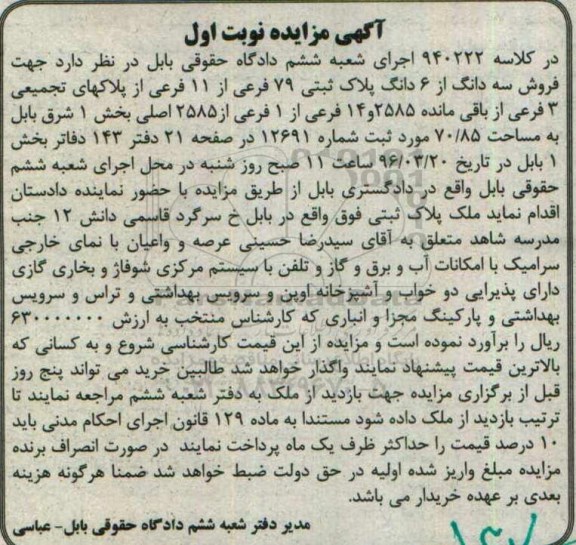 آگهی مزایده نوبت اول
در کلاسه ۹۴۰۲۲۲ اجرای شعبه ششم دادگاه حقوقی بابل در نظر دارد جهت
فروش سه دانگ از ۶ دانگ پلاک ثبتی ۷۹ فرعی از ۱۱ فرعی از پلاکهای تجمیعی
۳ فرعی از باقی مانده ۲۵۸۵و۱۴ فرعی از ۱ فرعی از۲۵۸۵ اصلی بخش ۱ شرق بابل
به مساحت ۷۰/۸۵ مورد ثبت شماره ۱۲۶۹۱ در صفحه ۲۱ دفتر ۱۴۳ دفاتر بخش
۱ بابل در تاریخ ۹۶/۰۳/۲۰ ساعت ۱۱ صبح روز شنبه در محل اجرای شعبه ششم
حقوقی بابل واقع در دادگستری بابل از طریق مزایده با حضور نماینده دادستان
اقدام نماید ملک پلاک ثبتی فوق واقع در بابل خ سرگرد قاسمی دانش ۱۲ جنب
مدرسه شاهد متعلق به آقای سیدرضا حسینی عرصه و واعیان با نمای خارجی
سرامیک با امکانات آب و برق و گاز و تلفن با سیستم مرکزی شوفاژ و بخاری گازی
دارای پذیرایی دو خواب و آشپزخانه اوپن و سرویس بهداشتی و تراس و سرویس
بهداشتی و پارکینگ مجزا و انباری که کارشناس منتخب به ارزش ۶۳۰۰۰۰۰۰۰
ریال را برآورد نموده است و مزایده از این قیمت کارشناسی شروع و به کسانی که
بالاترین قیمت پیشنهاد نمایند واگذار خواهد شد طالبین خرید می تواند پنج روز
قبل از برگزاری مزایده جهت بازدید از ملک به دفتر شعبه ششم مراجعه نمایند تا
ترتیب بازدید از ملک داده شود مستندا به ماده ۱۲۹ قانون اجرای احکام مدنی باید
۱۰ درصد قیمت را حداکثر ظرف یک ماه پرداخت نمایند در صورت انصراف برنده
مزایده مبلغ واریز شده اولیه در حق دولت ضبط خواهد شد ضمنا هرگونه هزینه
بعدی بر عهده خریدار می باشد.
مدیر دفتر شعبه ششم دادگاه حقوقی بابل- عباسی